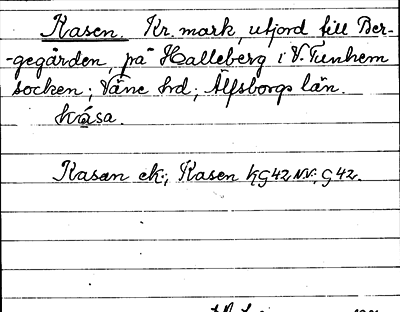 Kasen. Kr. mark, utjord till Ber-
-gegården, på Halleberg i V. Tunhem
socken; Väne hd; Älfsborgs län.
kása.
Kasan ek.; Kasen kG42NV; G42.